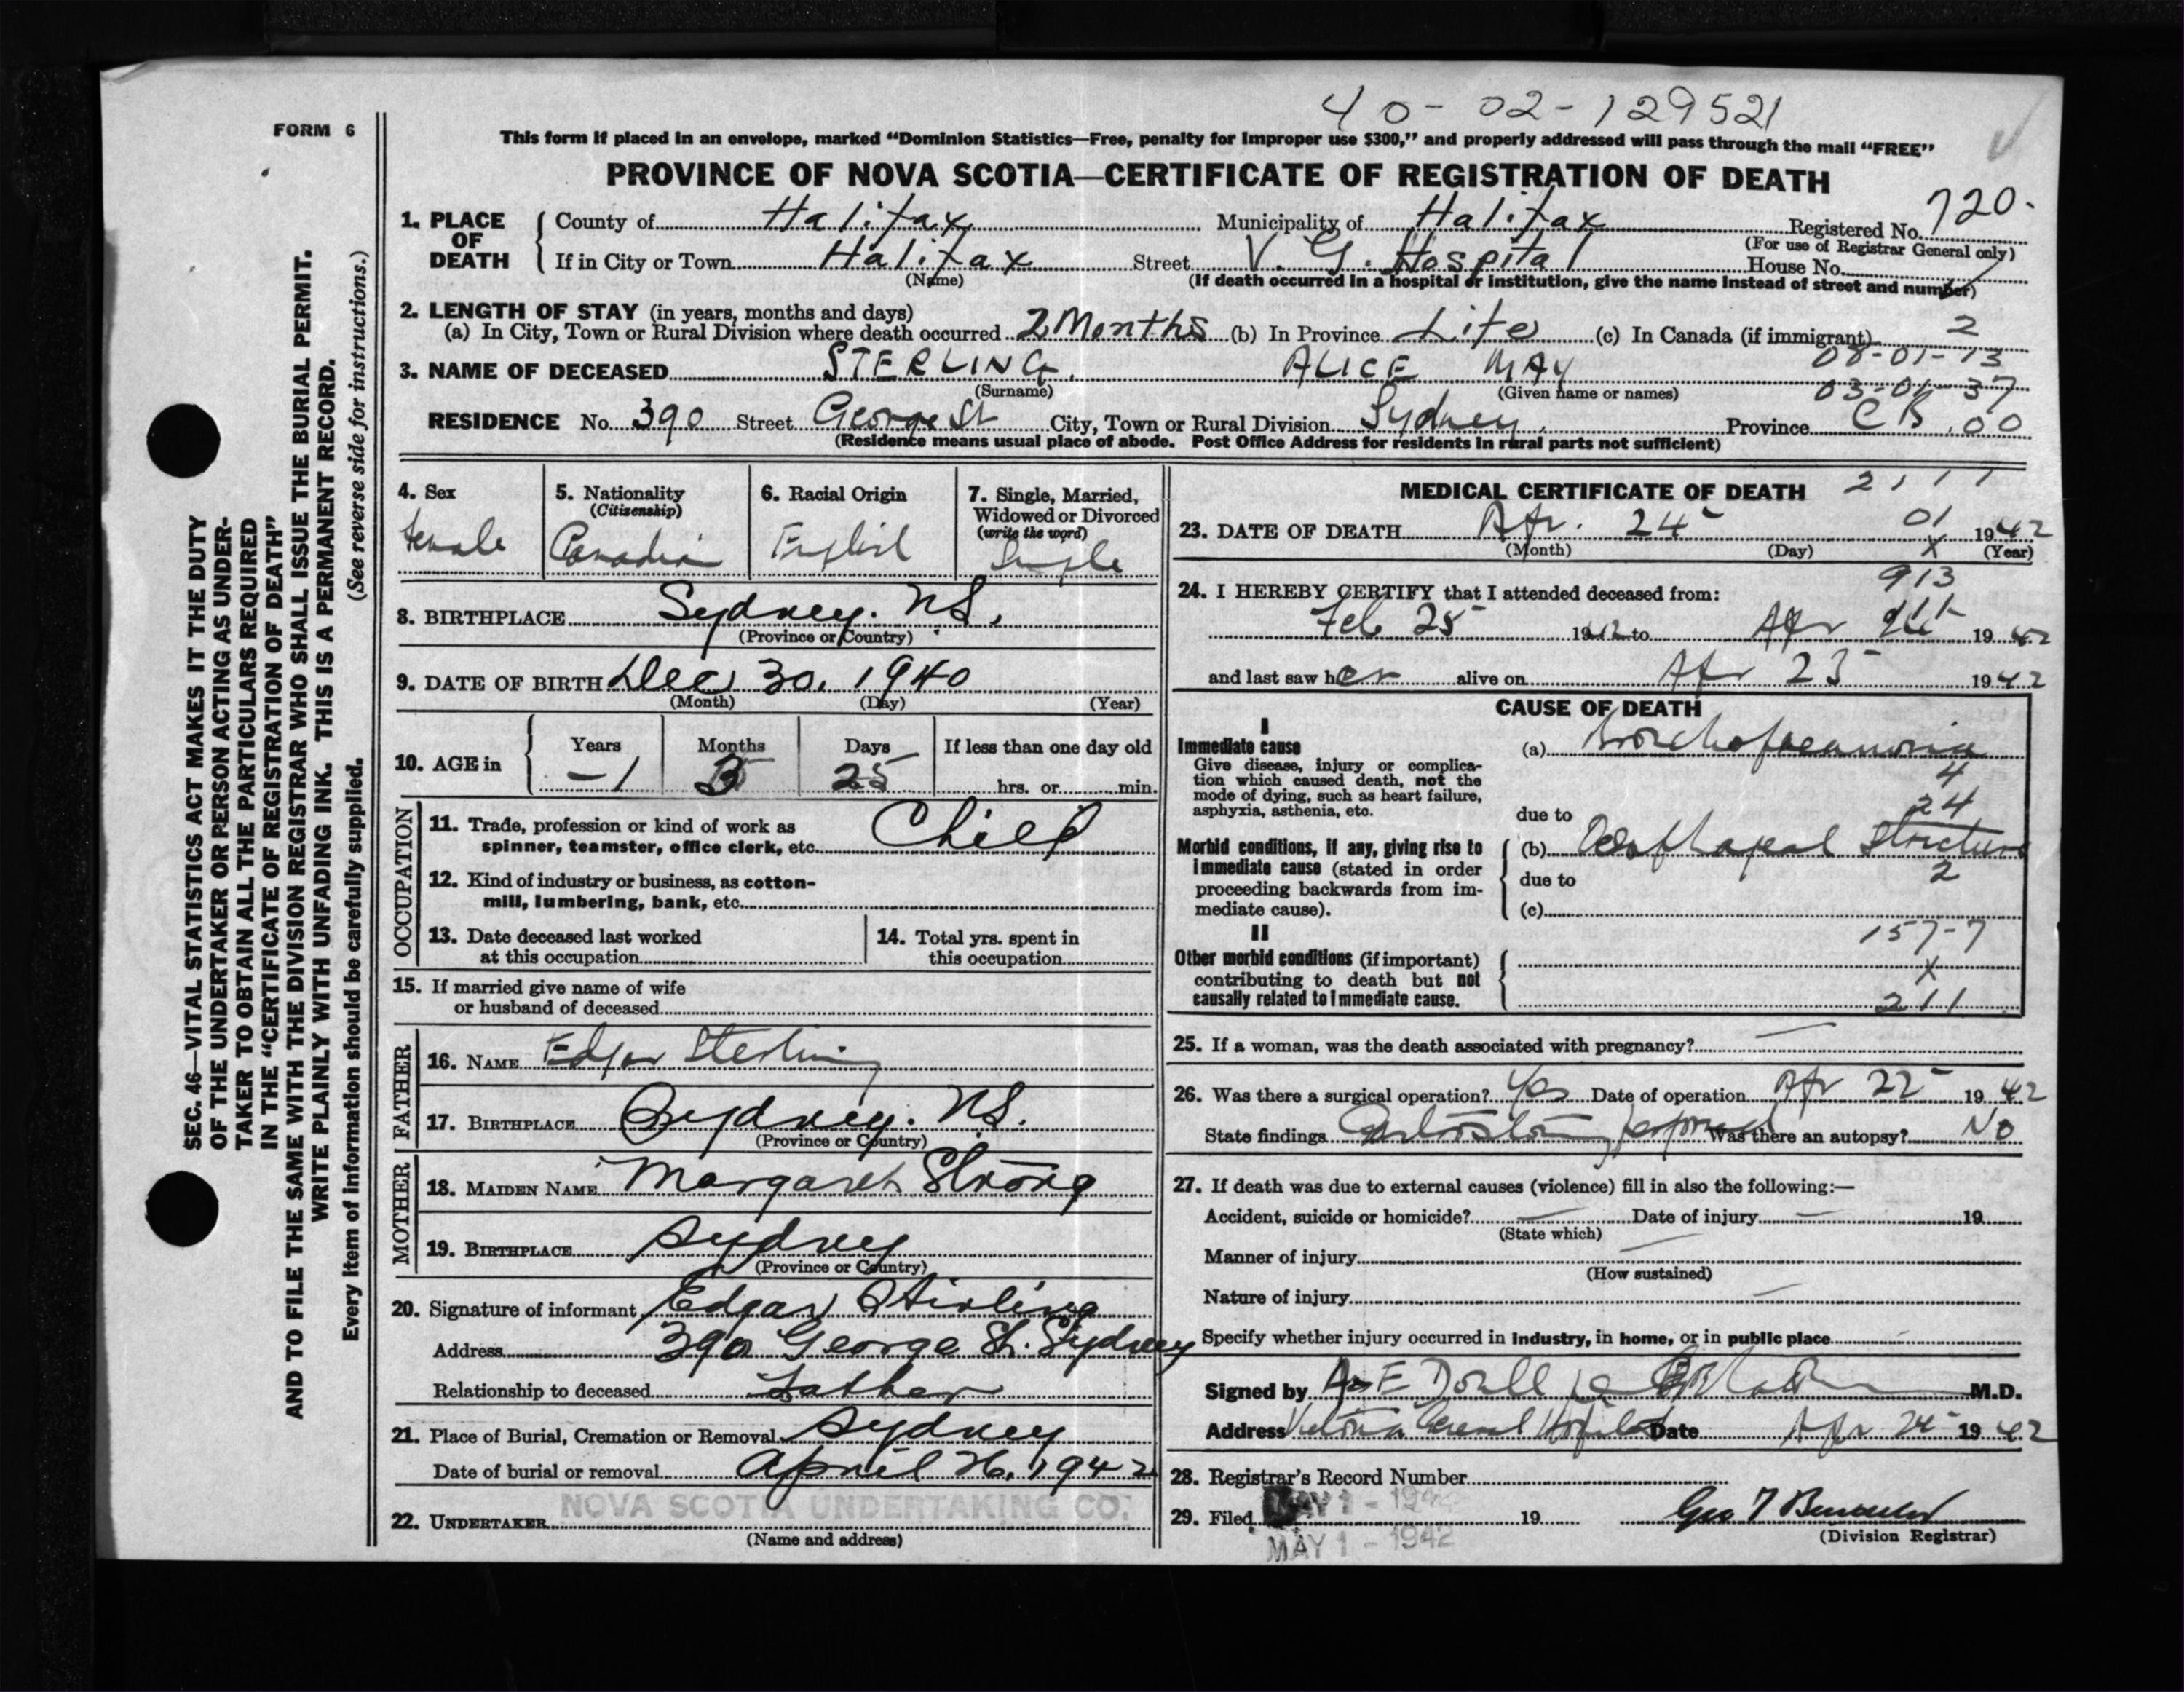 40-02-129521
FORM 6
This form if placed in an envelope, marked “Dominion Statistics—Free, penalty for improper use $300,” and properly addressed will pass through the mail “FREE”
PROVINCE OF NOVA SCOTIA—CERTIFICATE OF REGISTRATION OF DEATH
1. PLACE OF DEATH
County of Halifax Municipality of Halifax Registered No. 720.
(For use of Registrar General only)
If in City or Town Halifax Street V. G. Hospital House No.
(Name) (If death occurred in a hospital or institution, give the name instead of street and number)
2. LENGTH OF STAY (in years, months and days)
(a) In City, Town or Rural Division where death occurred 2 Months (b) In Province Life (c) In Canada (if immigrant) 2
08-01-13
3. NAME OF DECEASED STERLING, ALICE MAY
(Surname) (Given name or names) 03-01-37
RESIDENCE No. 390 Street George St City, Town or Rural Division Sydney, Province C B. 00
(Residence means usual place of abode. Post Office Address for residents in rural parts not sufficient)
4. Sex
female
5. Nationality
(Citizenship)
Canadian
6. Racial Origin
English
7. Single, Married, Widowed or Divorced
(write the word)
Single
8. BIRTHPLACE Sydney. N.S.
(Province or Country)
9. DATE OF BIRTH Dec 30, 1940
(Month) (Day) (Year)
10. AGE in
Years Months Days If less than one day old
1 3 25 hrs. or min.
OCCUPATION
11. Trade, profession or kind of work as spinner, teamster, office clerk, etc. Child
12. Kind of industry or business, as cotton-mill, lumbering, bank, etc.
13. Date deceased last worked at this occupation
14. Total yrs. spent in this occupation
15. If married give name of wife or husband of deceased
FATHER
16. NAME Edgar Sterling
17. BIRTHPLACE Sydney. N.S.
(Province or Country)
MOTHER
18. MAIDEN NAME Margaret Strong
19. BIRTHPLACE Sydney
(Province or Country)
20. Signature of informant Edgar Stirling
Address 390 George St. Sydney
Relationship to deceased Father
21. Place of Burial, Cremation or Removal Sydney
Date of burial or removal April 26, 1942
22. UNDERTAKER NOVA SCOTIA UNDERTAKING CO.
(Name and address)
MEDICAL CERTIFICATE OF DEATH 2111
23. DATE OF DEATH Apr. 24 01 1942
(Month) (Day) X (Year)
913
24. I HEREBY CERTIFY that I attended deceased from:
Feb 25 1942 to Apr 1942
and last saw her alive on Apr 23 1942
CAUSE OF DEATH
I
Immediate cause
Give disease, injury or complication which caused death, not the mode of dying, such as heart failure, asphyxia, asthenia, etc.
(a) Bronchopneumonia
4
24
due to
Morbid conditions, if any, giving rise to immediate cause (stated in order proceeding backwards from immediate cause).
(b) Oesophageal Stricture
2
due to
(c)
157-7
II
Other morbid conditions (if important) contributing to death but not causally related to immediate cause.
X
211
25. If a woman, was the death associated with pregnancy? —
26. Was there a surgical operation? Yes Date of operation Apr 22 1942
State findings Gastrostomy performed Was there an autopsy? No
27. If death was due to external causes (violence) fill in also the following:—
Accident, suicide or homicide? — Date of injury — 19
(State which)
Manner of injury —
(How sustained)
Nature of injury —
Specify whether injury occurred in industry, in home, or in public place
Signed by M.D.
Address Victoria General Hospital Date Apr 24 1942
28. Registrar's Record Number
29. Filed MAY 1 - 1942 19
MAY 1 - 1942
(Division Registrar)
SEC. 46—VITAL STATISTICS ACT MAKES IT THE DUTY
OF THE UNDERTAKER OR PERSON ACTING AS UNDER-
TAKER TO OBTAIN ALL THE PARTICULARS REQUIRED
IN THE “CERTIFICATE OF REGISTRATION OF DEATH”
AND TO FILE THE SAME WITH THE DIVISION REGISTRAR WHO SHALL ISSUE THE BURIAL PERMIT.
WRITE PLAINLY WITH UNFADING INK. THIS IS A PERMANENT RECORD.
Every item of information should be carefully supplied. (See reverse side for instructions.)